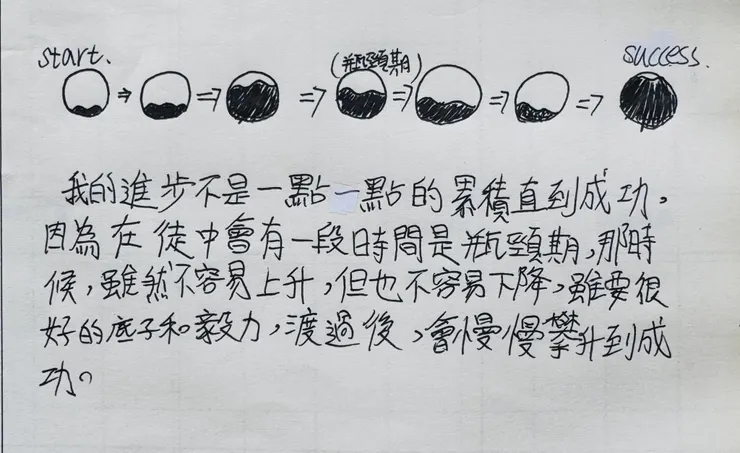 start.
(瓶頸期)
success.
我的進步不是一點一點的累積直到成功。
因為在徒中會有一段時間是瓶頸期,那時
候,雖然不容易上升,但也不容易下降,雖要很
好的底子和毅力,渡過後,會慢慢攀升到成
功。